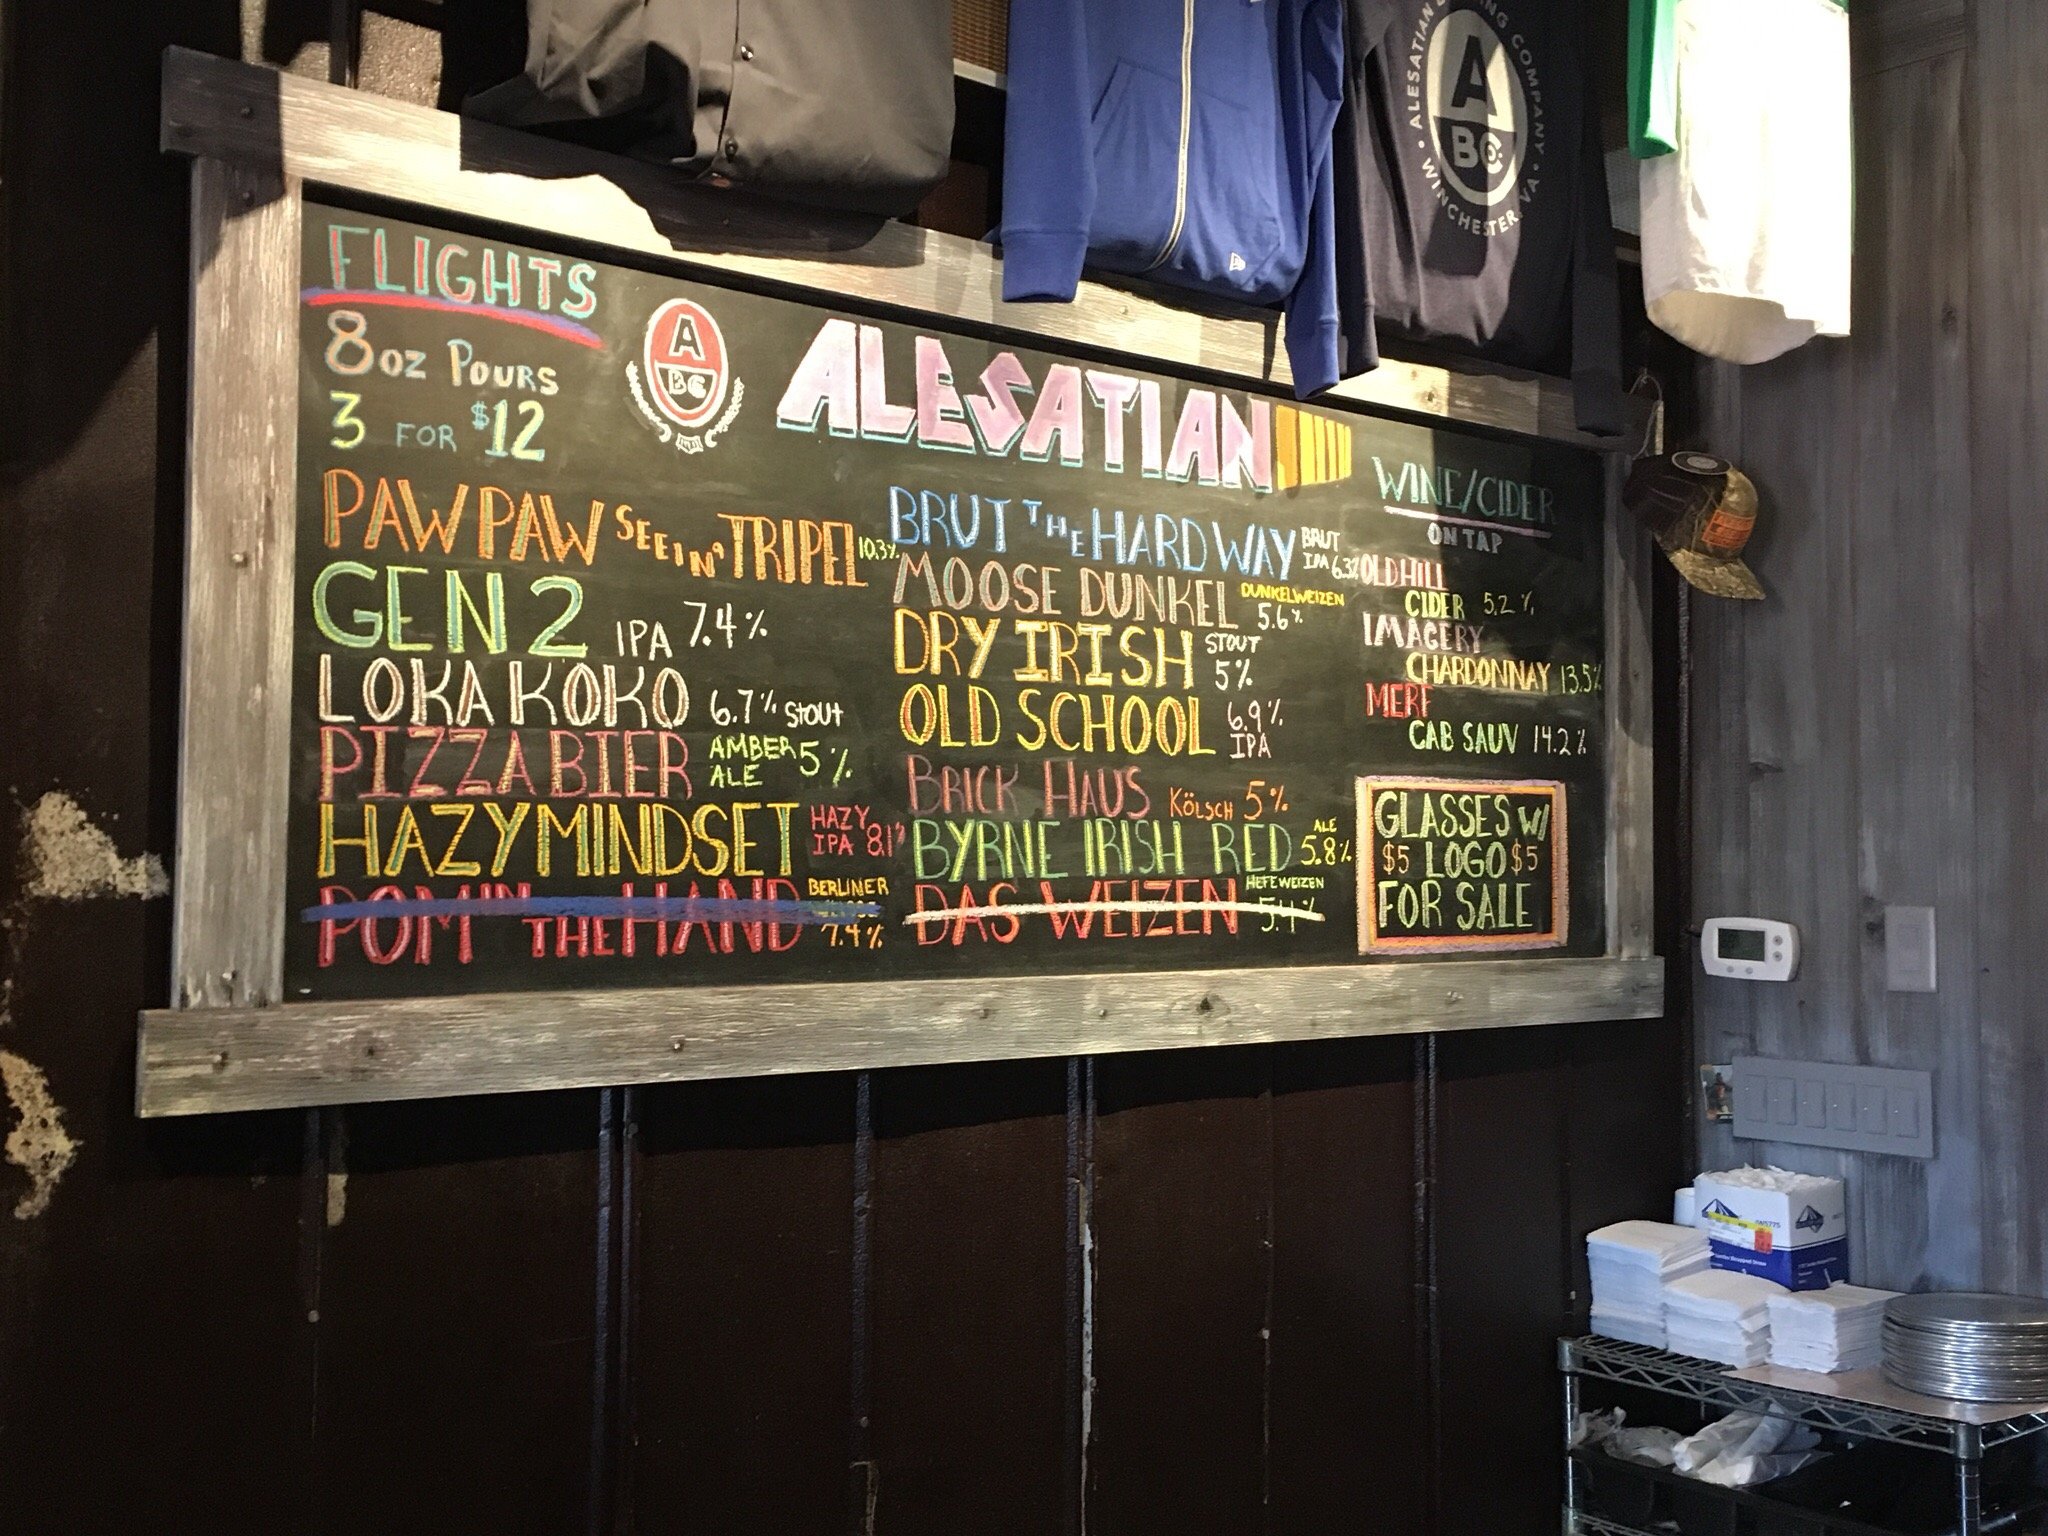 ALESATIAN BREWING COMPANY
A
BC.
WINCHESTER, VA
FLIGHTS
8oz POURS
3 FOR $12
A
BC
ALESATIAN
PAWPAW SEEIN' TRIPEL 10.3%
GEN 2 IPA 7.4%
LOKA KOKO 6.7% STOUT
PIZZA BIER AMBER ALE 5%
HAZY MINDSET HAZY IPA 8.1%
POM IN THE HAND BERLINER 7.4%
BRUT THE HARD WAY BRUT IPA 6.3%
MOOSE DUNKEL DUNKELWEIZEN 5.6%
DRY IRISH STOUT 5%
OLD SCHOOL 6.9% IPA
BRICK HAUS KÖLSCH 5%
BYRNE IRISH RED ALE 5.8%
DAS WEIZEN HEFEWEIZEN 5.4%
WINE/CIDER
ON TAP
OLD HILL
CIDER 5.2%
IMAGERY
CHARDONNAY 13.5%
MERF
CAB SAUV 14.2%
GLASSES W/
$5 LOGO $5
FOR SALE